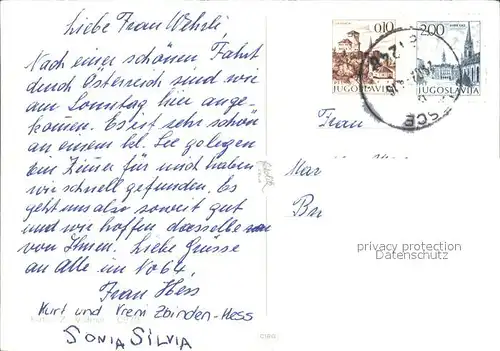 Liebe Frau Wehrli,
Nach einer schönen Fahrt
durch Österreich sind wir
am Sonntag hier ange-
kommen. Es ist sehr schön
an einem kl. See gelegen
Ein Zimer für mich haben
wir schnell gefunden. Es
geht uns also soweit gut
und wir hoffen dasselbe
von Ihnen. Liebe Grüsse
an alle im No 64.
Frau Hess
Kurt und Vreni Zbinden-Hess
SONIA SILVIA
0.10
JUGOSLAVIJA
2.00
JUGOSLAVIJA
Frau
Mar
privacy protection